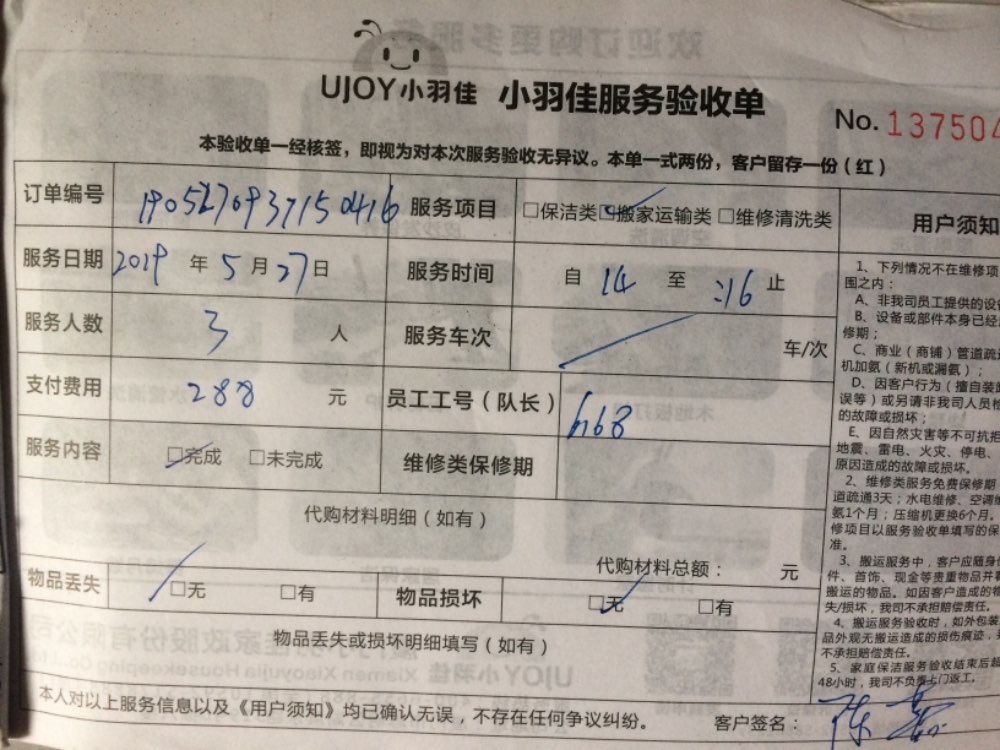 UJOY小羽佳 小羽佳服务验收单
No. 137504
本验收单一经核签，即视为对本次服务验收无异议。本单一式两份，客户留存一份（红）
订单编号 190527093715 0416 服务项目 □保洁类 ☑搬家运输类 □维修清洗类
服务日期 2019 年 5 月 27 日 服务时间 自 14 至 :16 止
服务人数 3 人 服务车次 / 车/次
支付费用 288 元 员工工号（队长） 668
服务内容 ☑完成 □未完成 维修类保修期
代购材料明细（如有）
代购材料总额： 元
物品丢失 ☑无 □有 物品损坏 ☑无 □有
物品丢失或损坏明细填写（如有）
本人对以上服务信息以及《用户须知》均已确认无误，不存在任何争议纠纷。 客户签名： 陈
用户须知
1、下列情况不在维修项
围之内：
A、非我司员工提供的设
B、设备或部件本身已经
修期；
C、商业（商铺）管道疏
机加氨（新机或漏氨）；
D、因客户行为（擅自装
误等）或另请非我司人员
的故障或损坏；
E、因自然灾害等不可抗拒
地震、雷电、火灾、停电、
原因造成的故障或损坏。
2、维修类服务免费保修期
道疏通3天；水电维修、空调
氨1个月；压缩机更换6个月。
修项目以服务验收单填写的保
准。
3、搬运服务中，客户应随身
件、首饰、现金等贵重物品并
搬运的物品。如因客户造成的物
失/损坏，我司不承担赔偿责任。
4、搬运服务验收时，如外包装
品外观无搬运造成的损伤痕迹，
不承担赔偿责任。
5、家庭保洁服务验收结束后超
48小时，我司不负责上门返工。